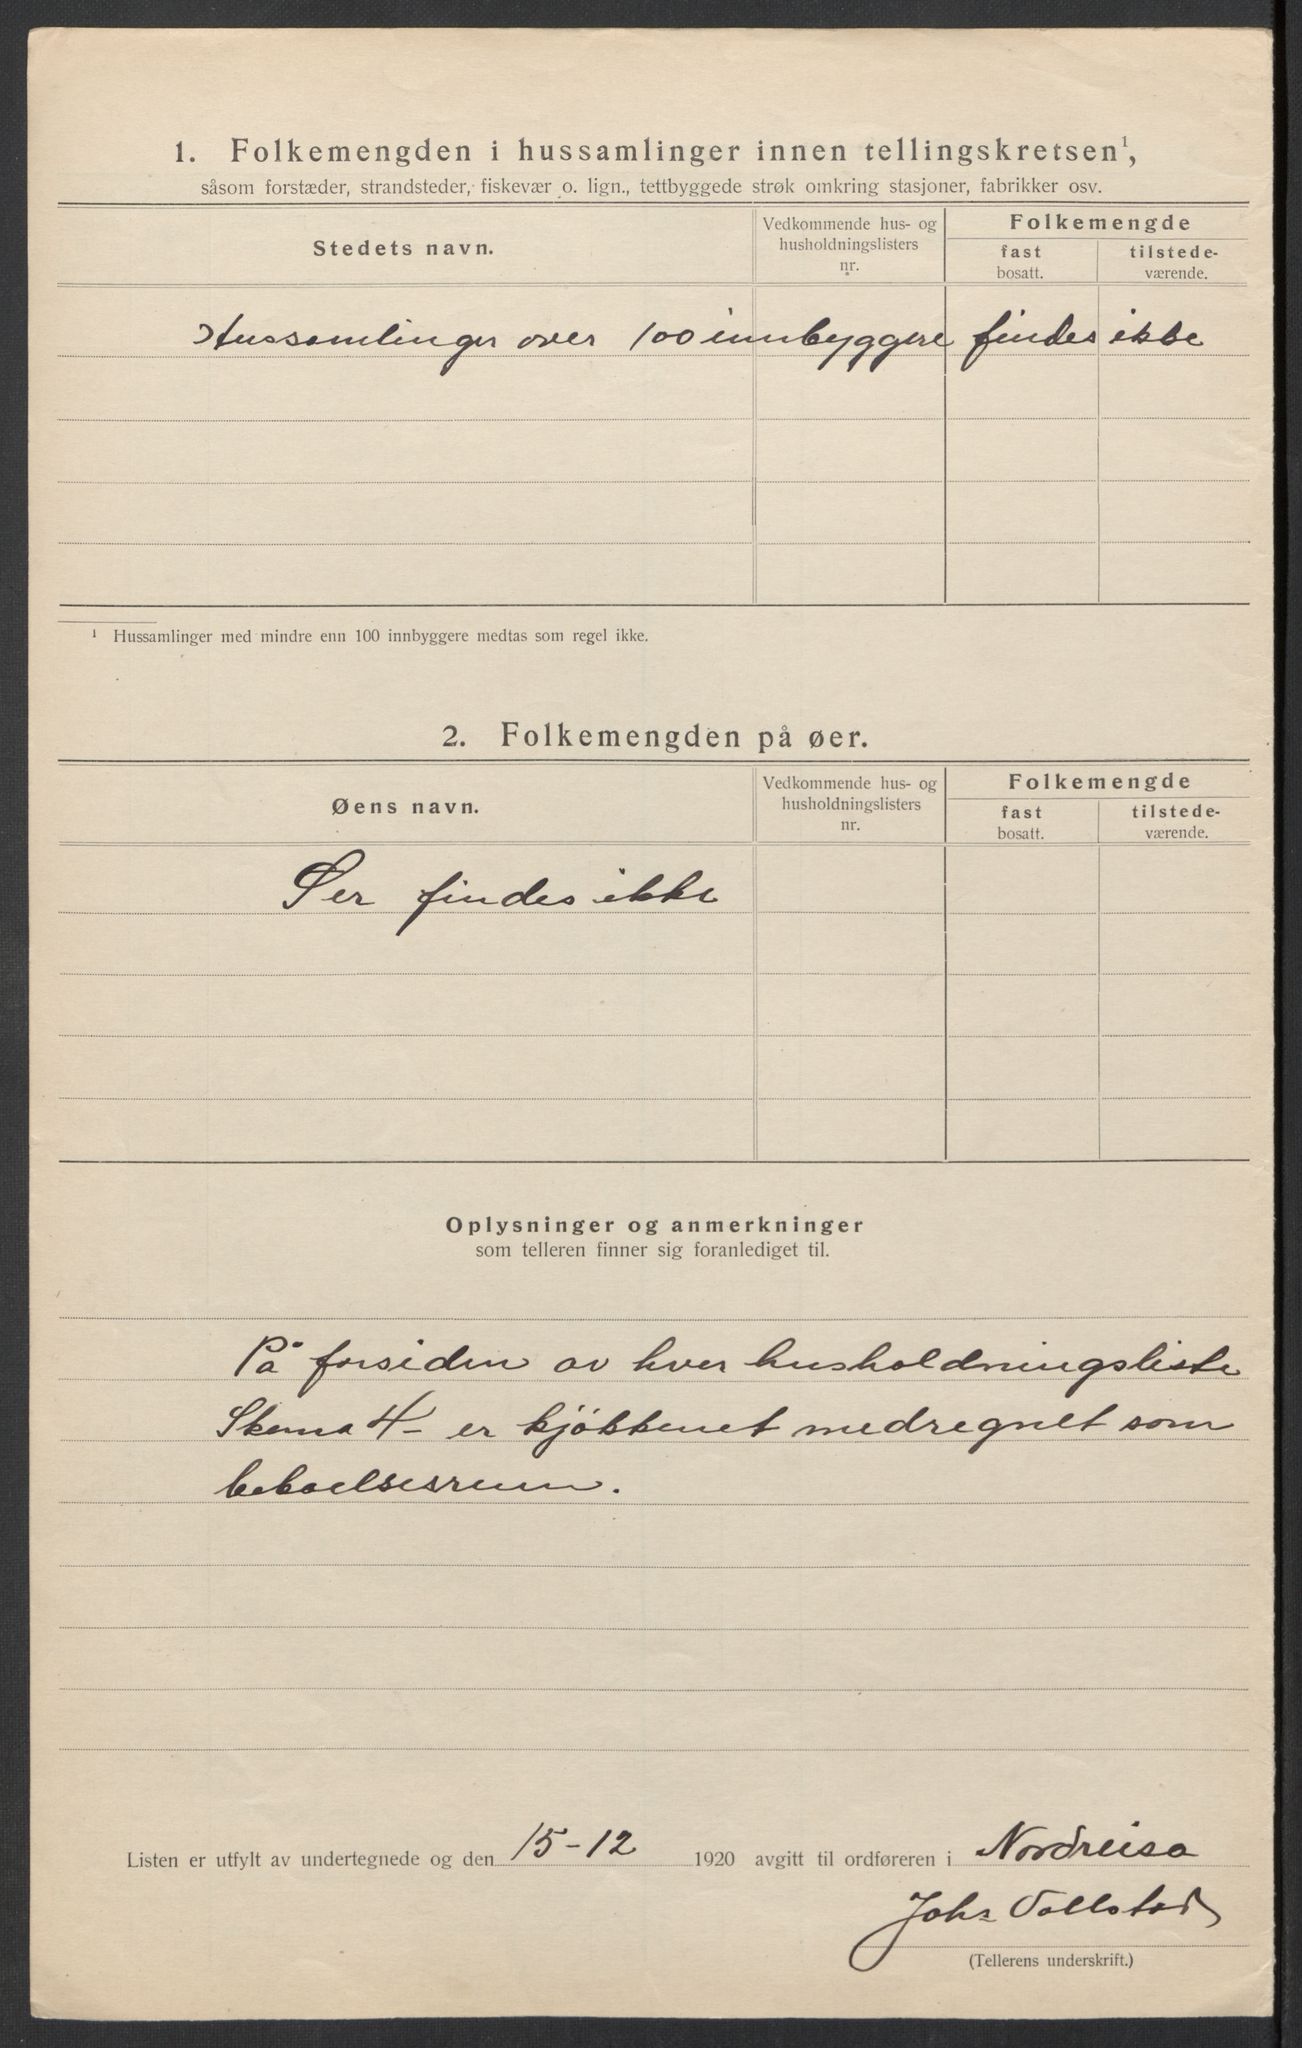 1. Folkemengden i hussamlinger innen tellingskretsen¹,
såsom forstæder, strandsteder, fiskevær o. lign., tettbyggede strøk omkring stasjoner, fabrikker osv.
Stedets navn.
Vedkommende hus- og
husholdningslisters
nr.
Folkemengde
fast
bosatt.
tilstede-
værende.
Hussamlinger over 100 innbyggere findes ikke
¹ Hussamlinger med mindre enn 100 innbyggere medtas som regel ikke.
2. Folkemengden på øer.
Øens navn.
Vedkommende hus- og
husholdningslisters
nr.
Folkemengde
fast
bosatt.
tilstede-
værende.
Øer findes ikke
Oplysninger og anmerkninger
som telleren finner sig foranlediget til.
På forsiden av hver husholdningsliste
Skema 4 - er kjøkkenet medregnet som
beboelsesrum.
Listen er utfylt av undertegnede og den 15-12 1920 avgitt til ordføreren i Nordreisa
Johs
(Tellerens underskrift.)